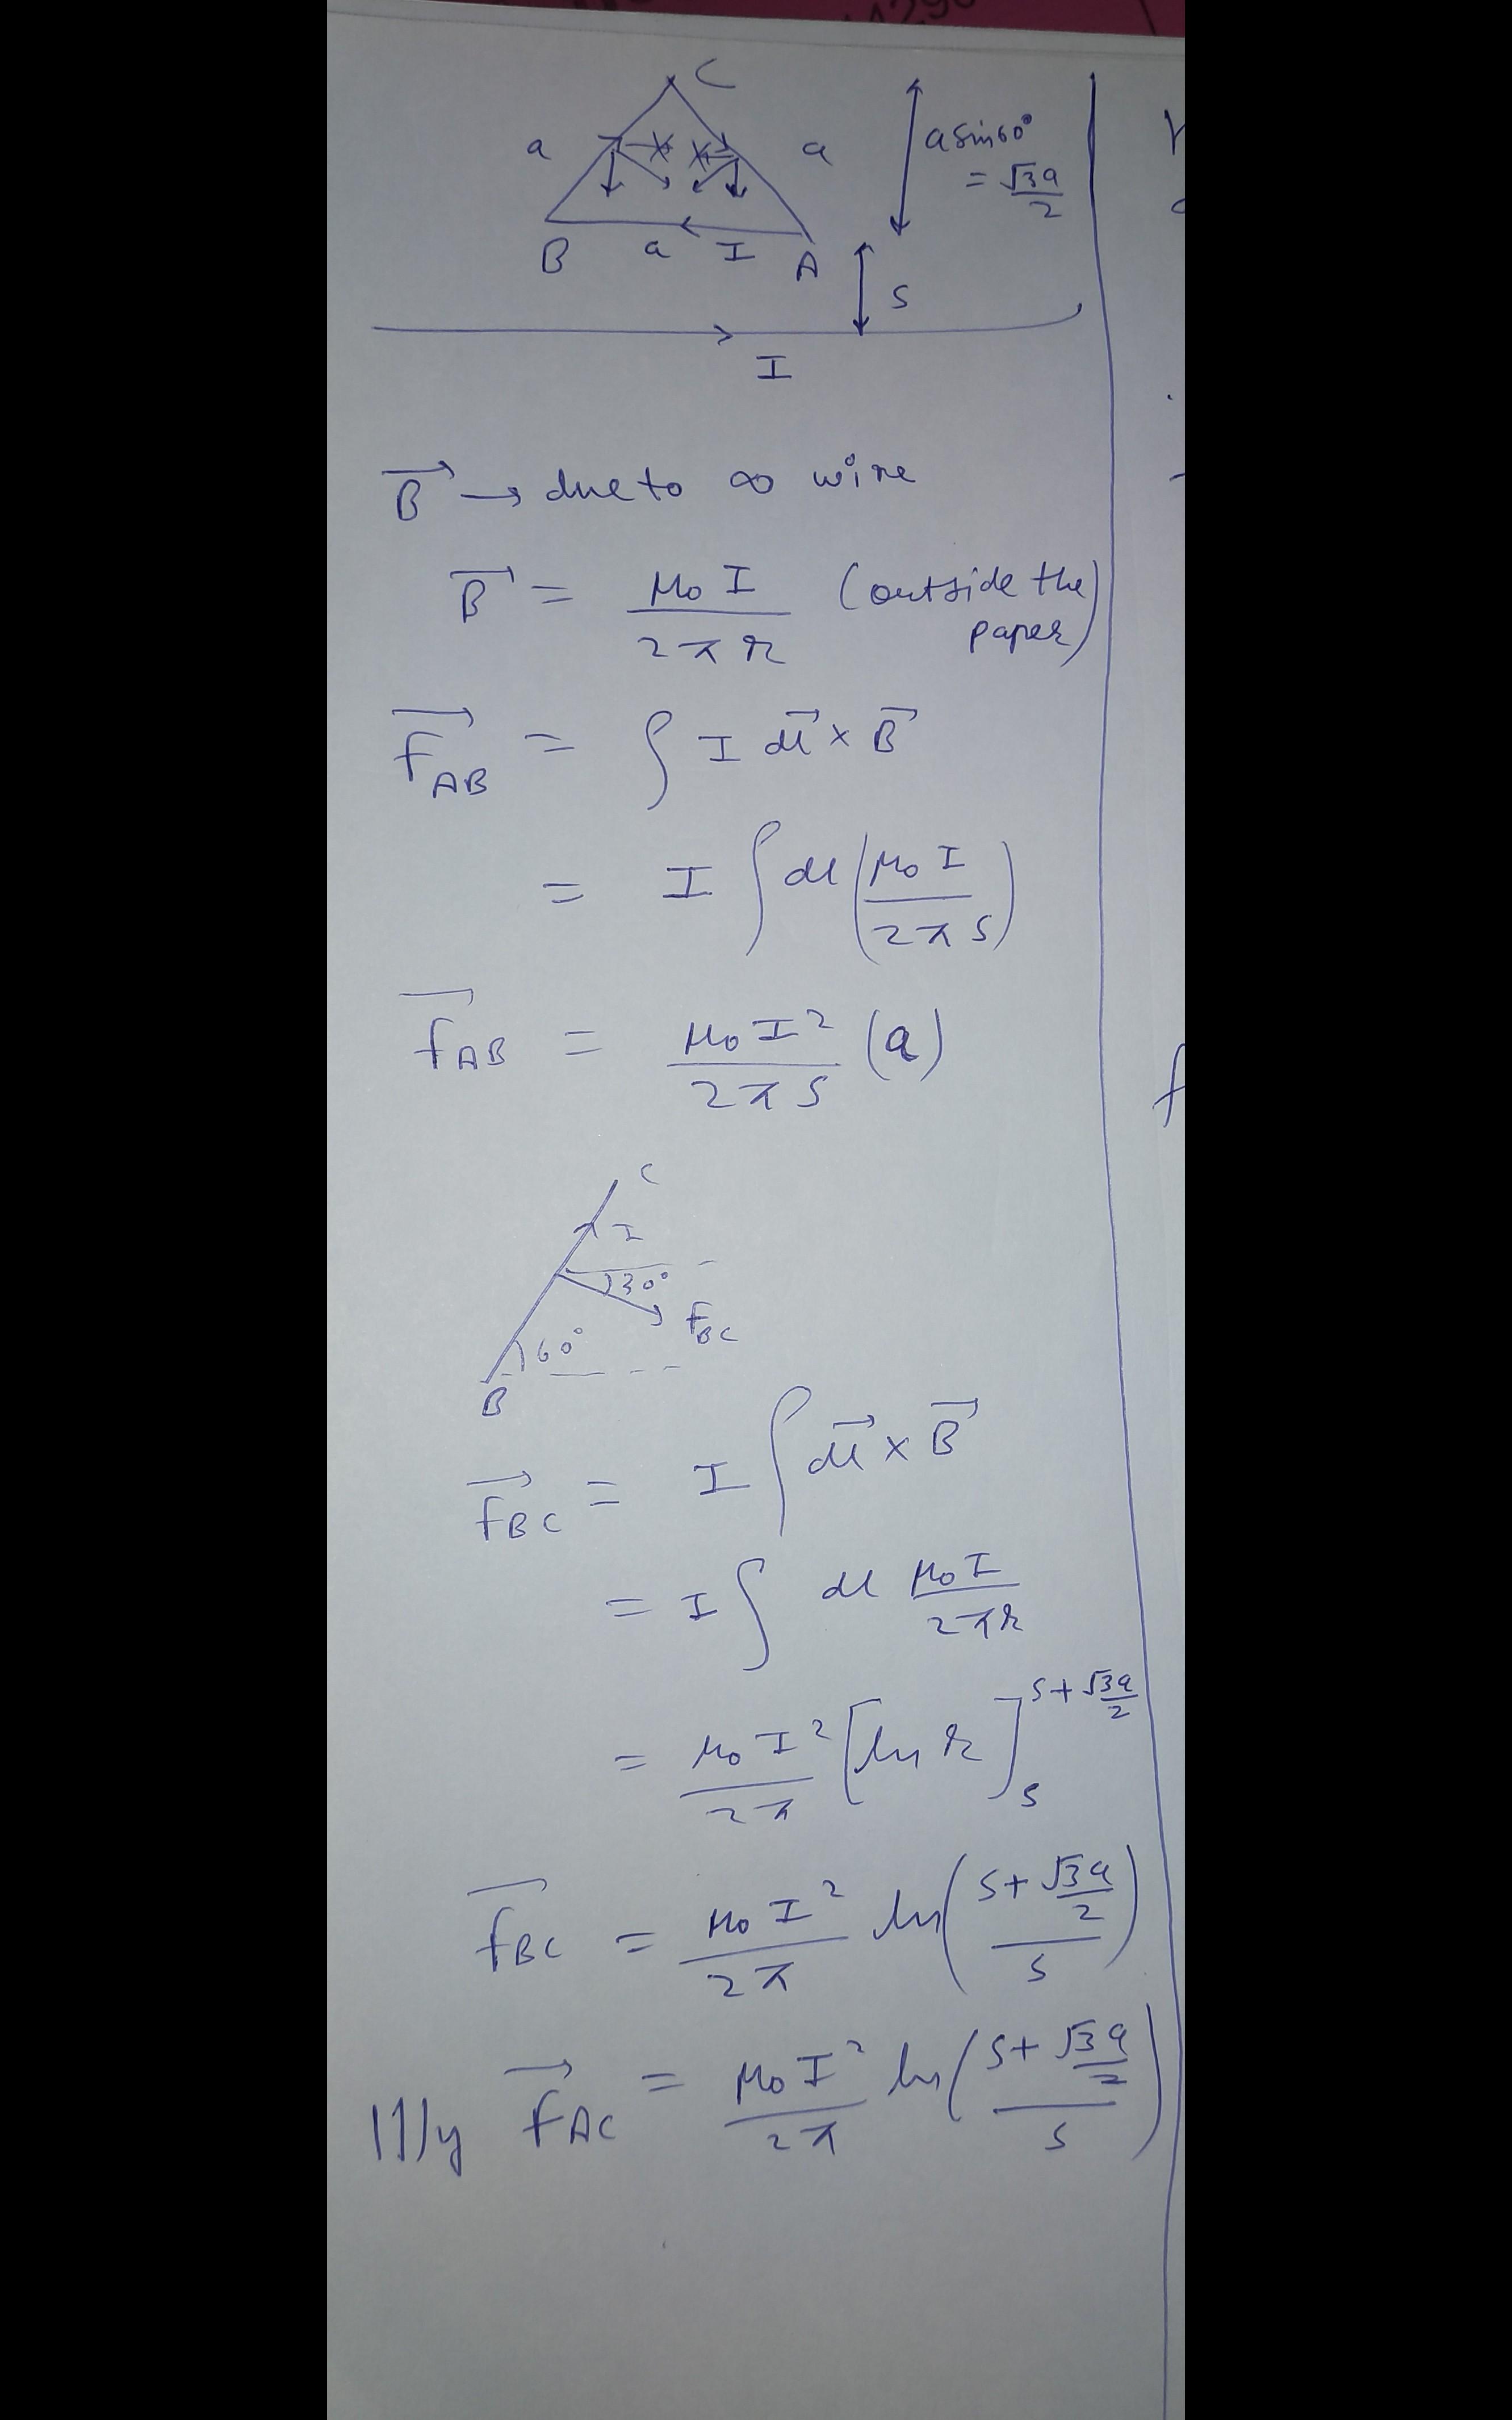 C
a a a sin60°
= √3a/2
B a I A
S
I
B⃗ → due to ∞ wire
B⃗ = μ₀ I / 2π r (outside the paper)
F⃗_AB = ∫ I dl⃗ × B⃗
= I ∫ dl (μ₀ I / 2π S)
f⃗_AB = μ₀ I² / 2π S (a)
C
I
30°
F_BC
60°
B
f⃗_BC = I ∫ dl⃗ × B⃗
= I ∫ dl μ₀ I / 2π r
= μ₀ I² / 2π [ln r]_S^{S + √3a/2}
f⃗_BC = μ₀ I² / 2π ln( (S + √3a/2) / S )
|||ly f⃗_AC = μ₀ I² / 2π ln( (S + √3a/2) / S )